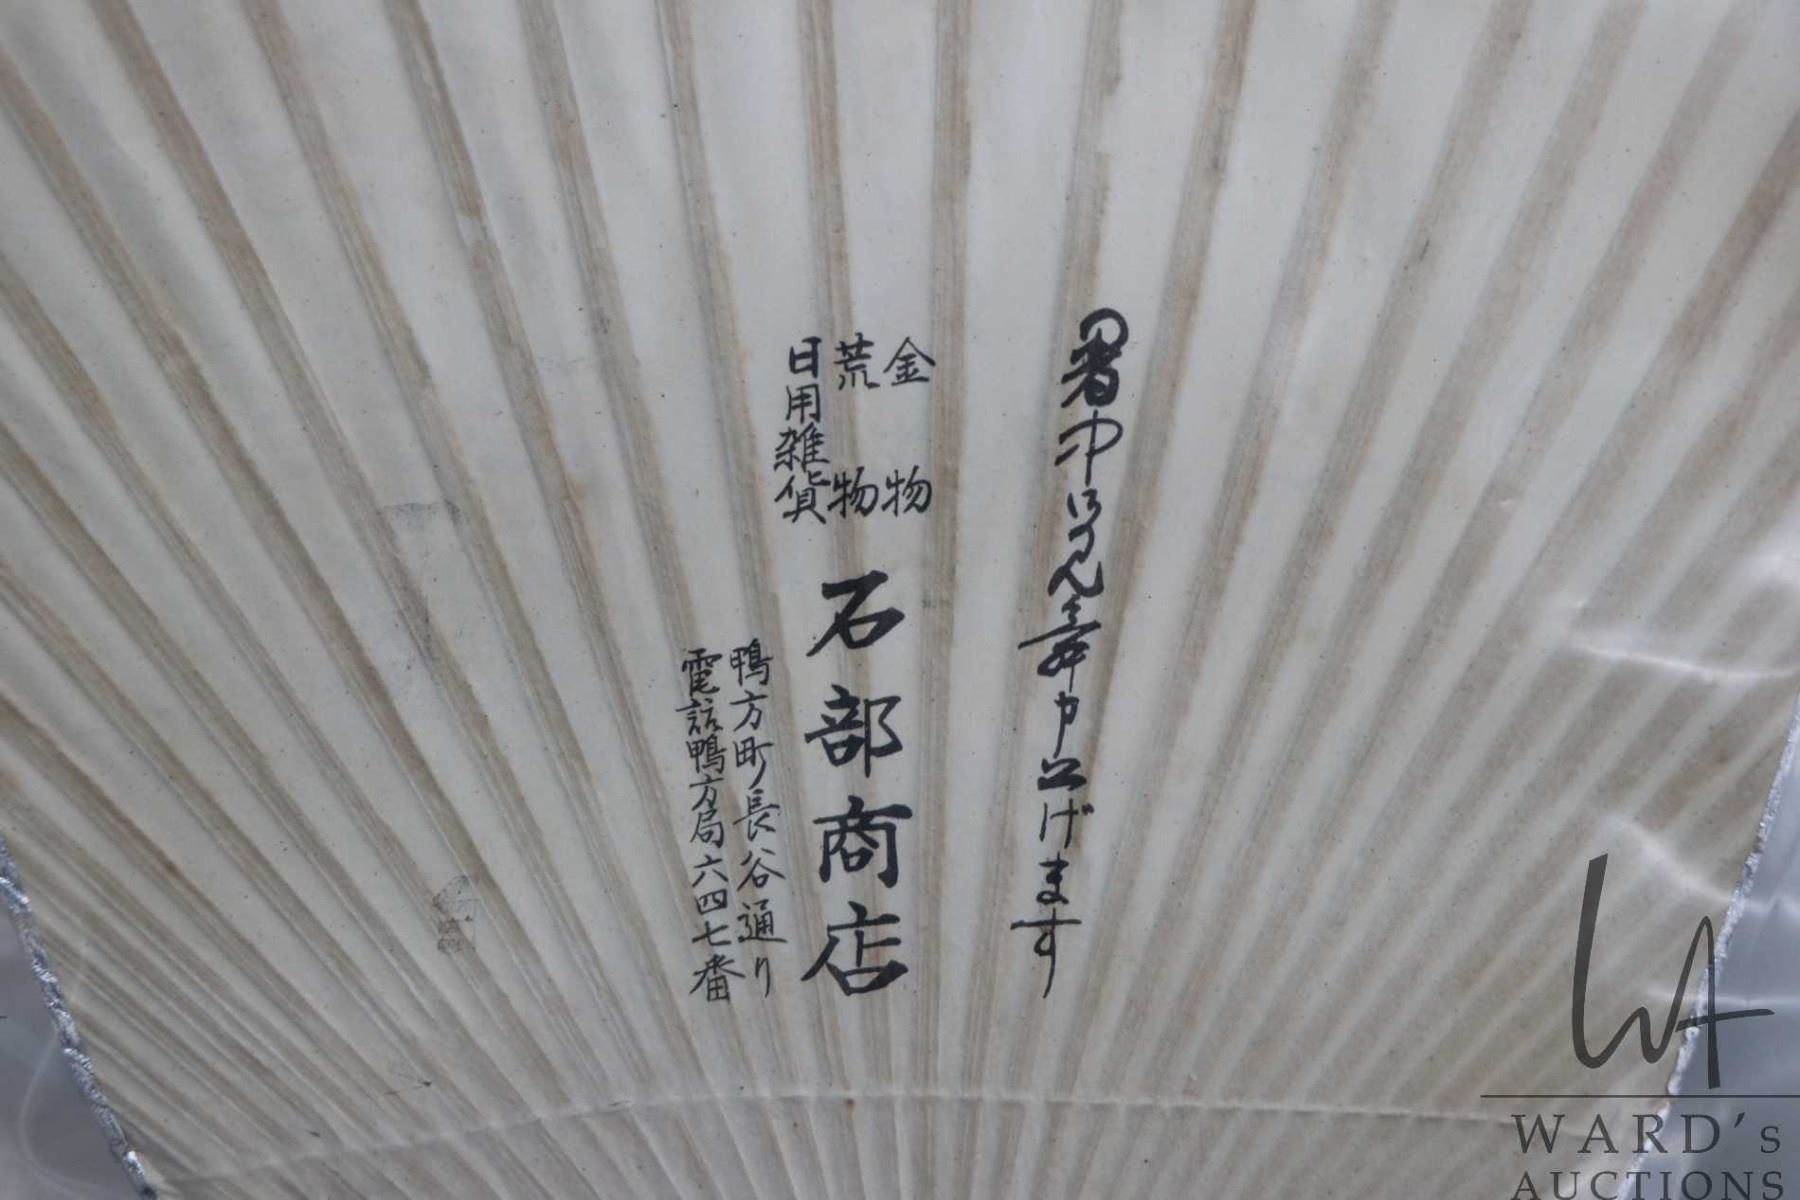 暑中御見舞申上げます
金物
荒物
日用雑貨
石部商店
鴨方町長谷通り
電話鴨方局六四七番
WARD's
AUCTIONS